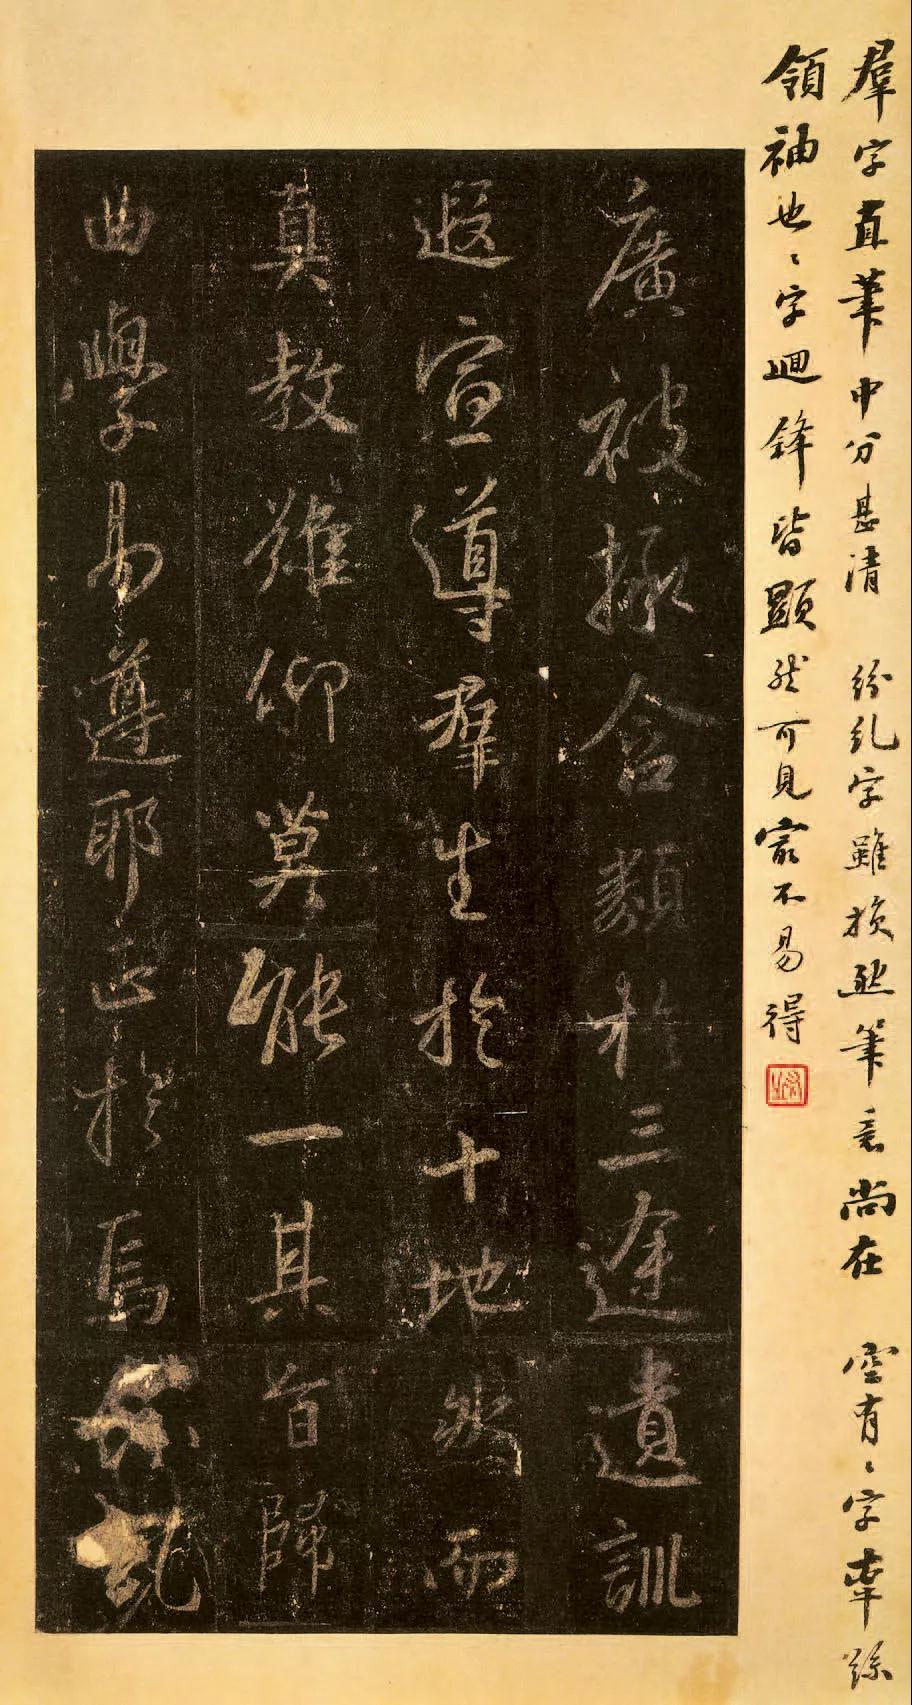 羣字直筆中分甚清 紛糺字雖損然筆意尚在 空有〻字牽絲
領袖也〻字迴鋒皆顯然可見㝡不易得
廣被拯含類於三途遺訓
遐宣導羣生於十地然而
真教難仰莫能一其旨歸
曲學易遵耶正於焉紛糺